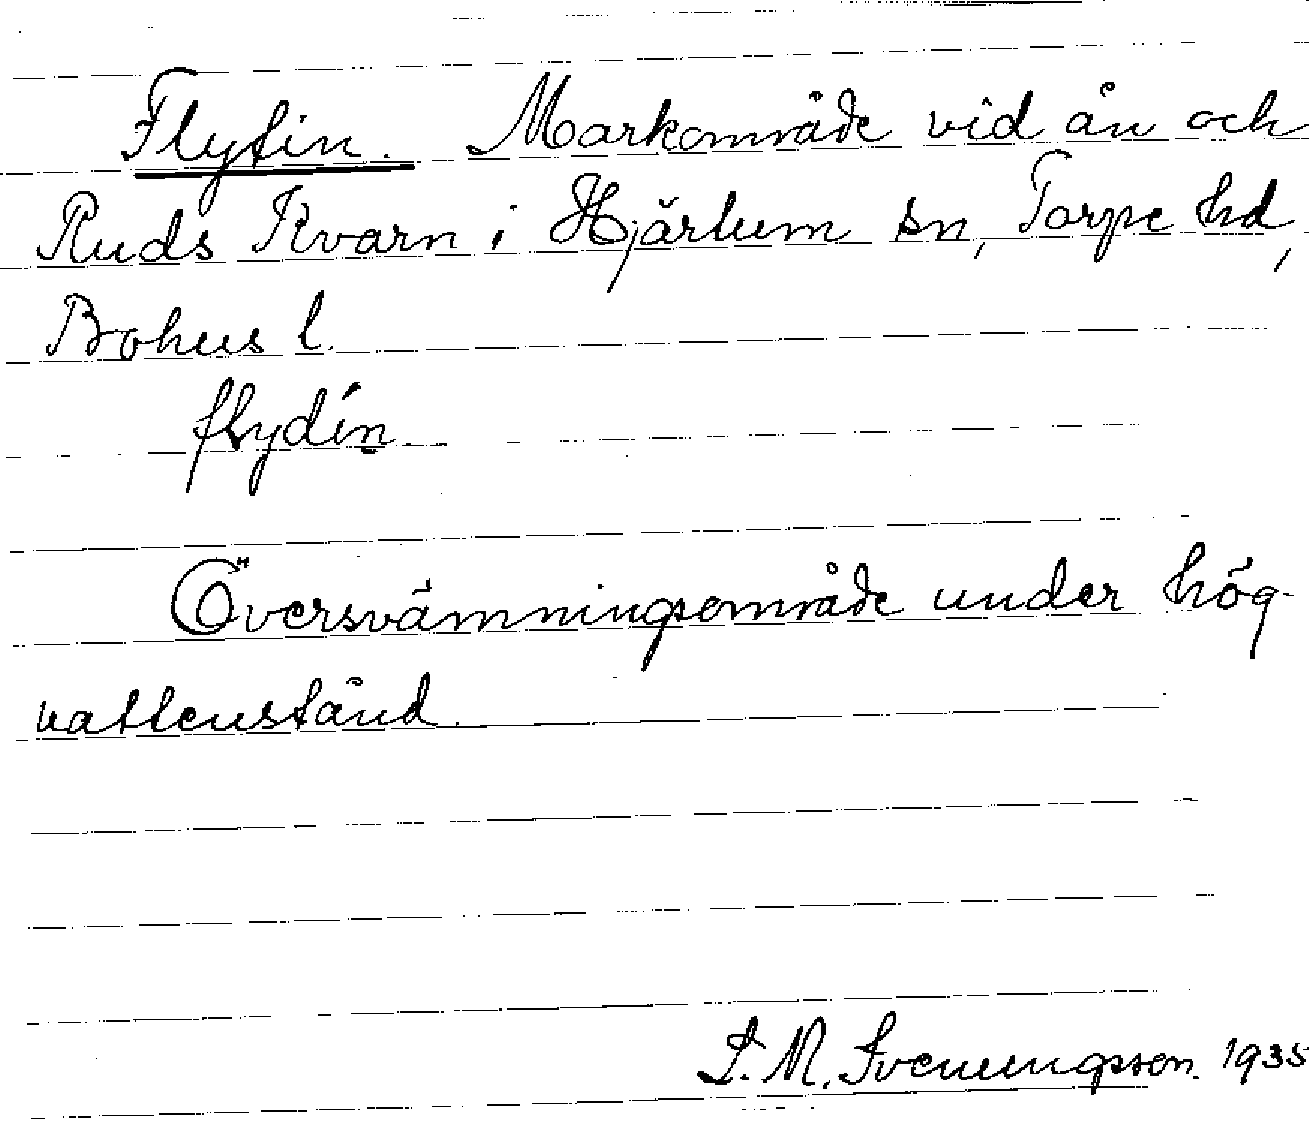 Flytin. Markområde vid ån och
Ruds Kvarn i Hjärtum sn, Torpe hd,
Bohus l.
flydín
Översvämningsområde under hög-
vattenstånd.
S. M. Svenungsson. 1935